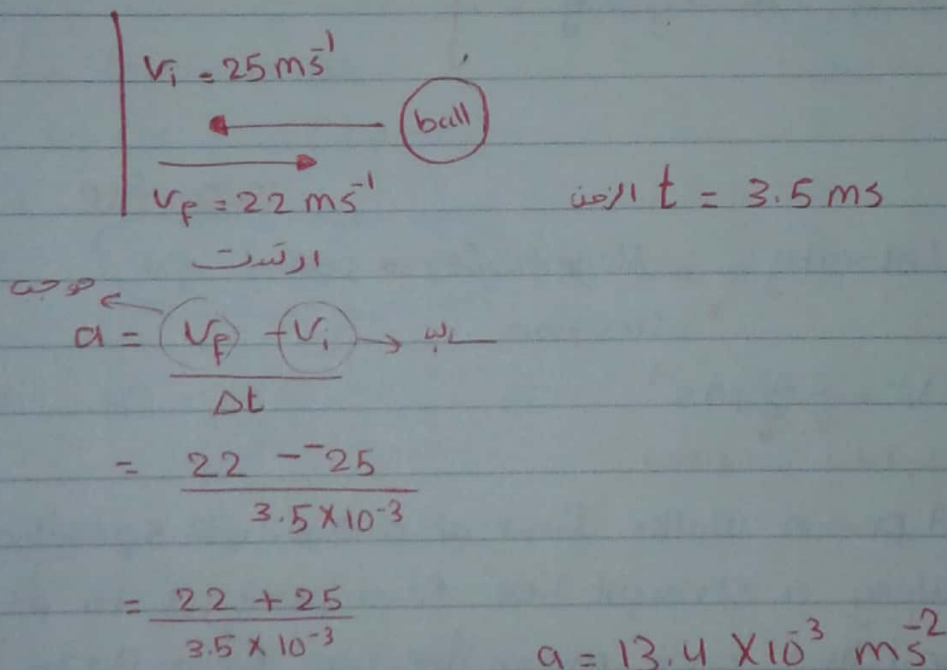 Vᵢ = 25 ms⁻¹
ball
V_f = 22 ms⁻¹
الزمن t = 3.5 ms
ارتدت
موجب
a = V_f - Vᵢ → سالب
Δt
= 22 - ⁻25
3.5 × 10⁻³
= 22 + 25
3.5 × 10⁻³
a = 13.4 × 10⁻³ ms⁻²